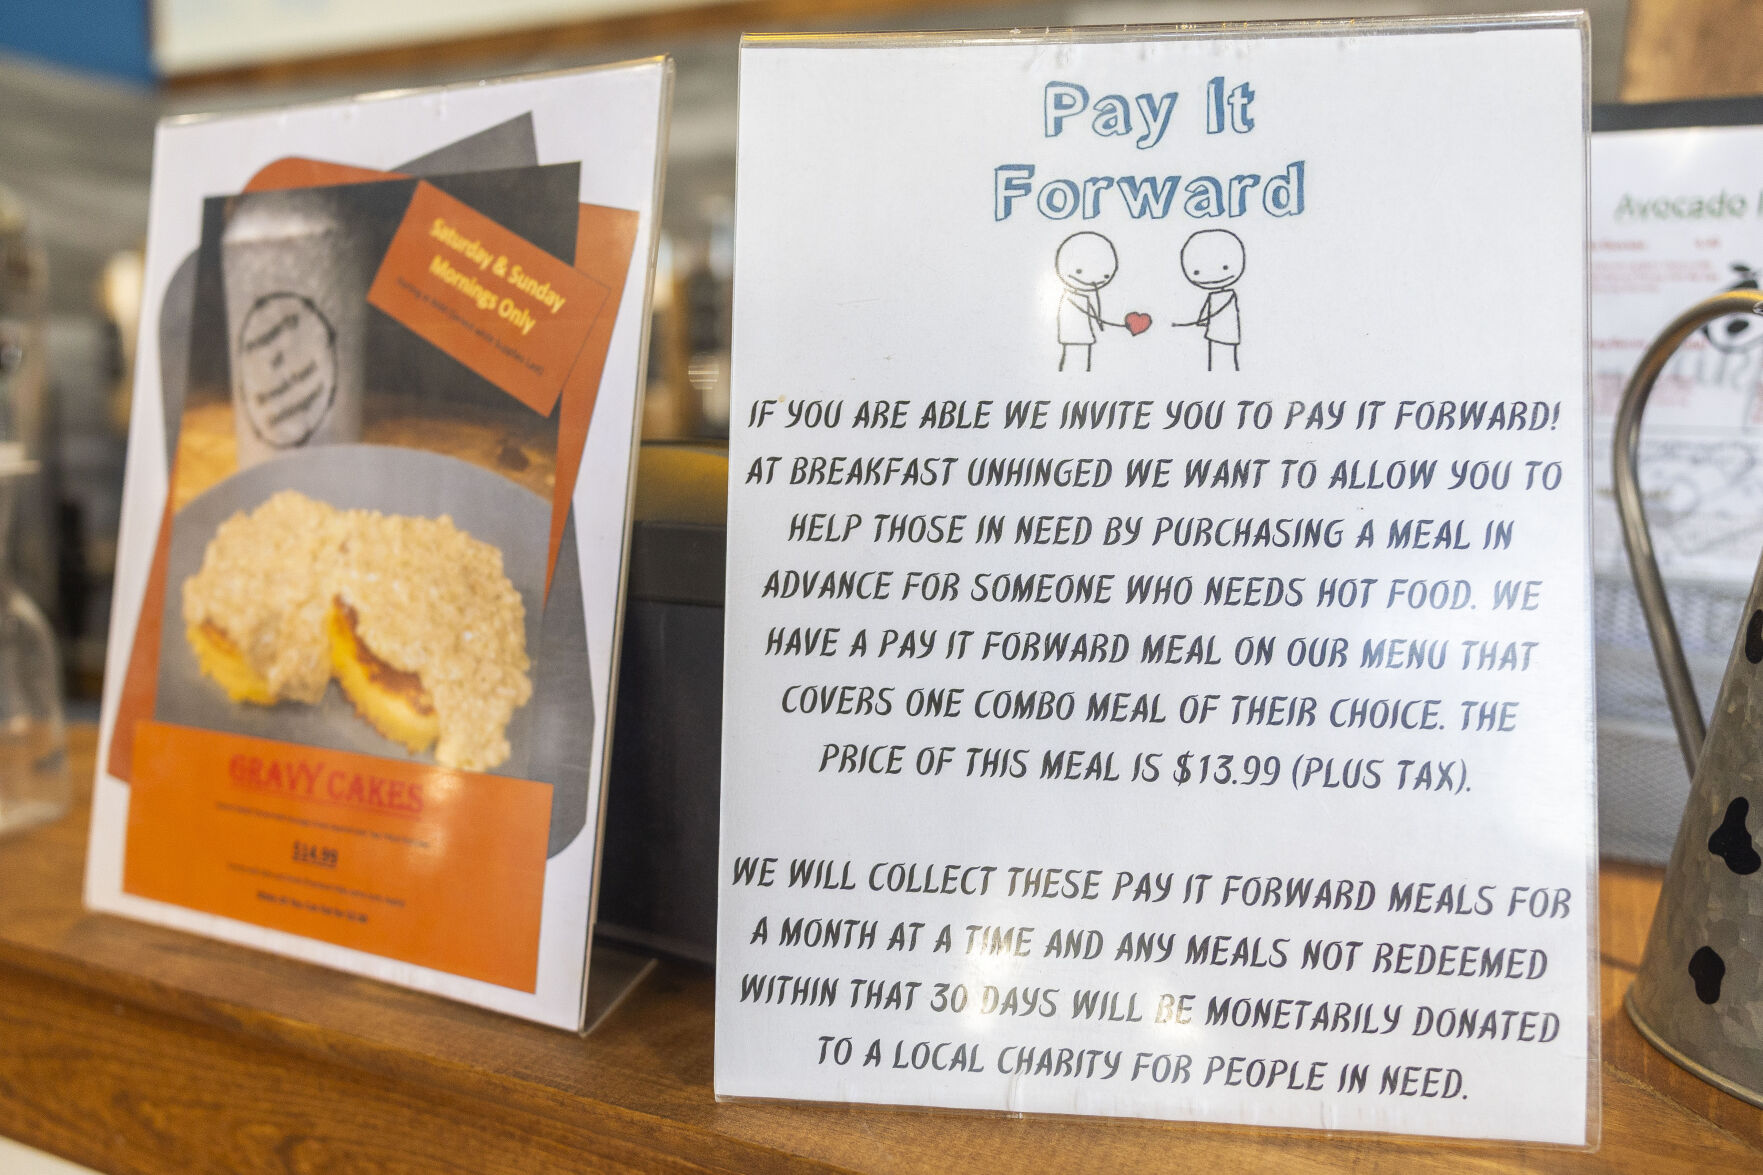 Saturday & Sunday
Mornings Only
GRAVY CAKES
$14.99
Pay It
Forward
IF YOU ARE ABLE WE INVITE YOU TO PAY IT FORWARD!
AT BREAKFAST UNHINGED WE WANT TO ALLOW YOU TO
HELP THOSE IN NEED BY PURCHASING A MEAL IN
ADVANCE FOR SOMEONE WHO NEEDS HOT FOOD. WE
HAVE A PAY IT FORWARD MEAL ON OUR MENU THAT
COVERS ONE COMBO MEAL OF THEIR CHOICE. THE
PRICE OF THIS MEAL IS $13.99 (PLUS TAX).
WE WILL COLLECT THESE PAY IT FORWARD MEALS FOR
A MONTH AT A TIME AND ANY MEALS NOT REDEEMED
WITHIN THAT 30 DAYS WILL BE MONETARILY DONATED
TO A LOCAL CHARITY FOR PEOPLE IN NEED.
Avocado